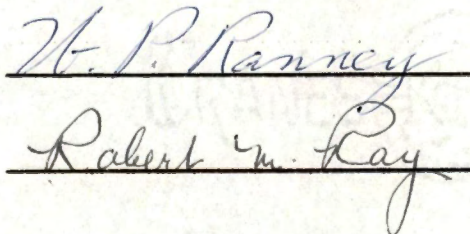 W. P. Ranney
Robert M. Ray